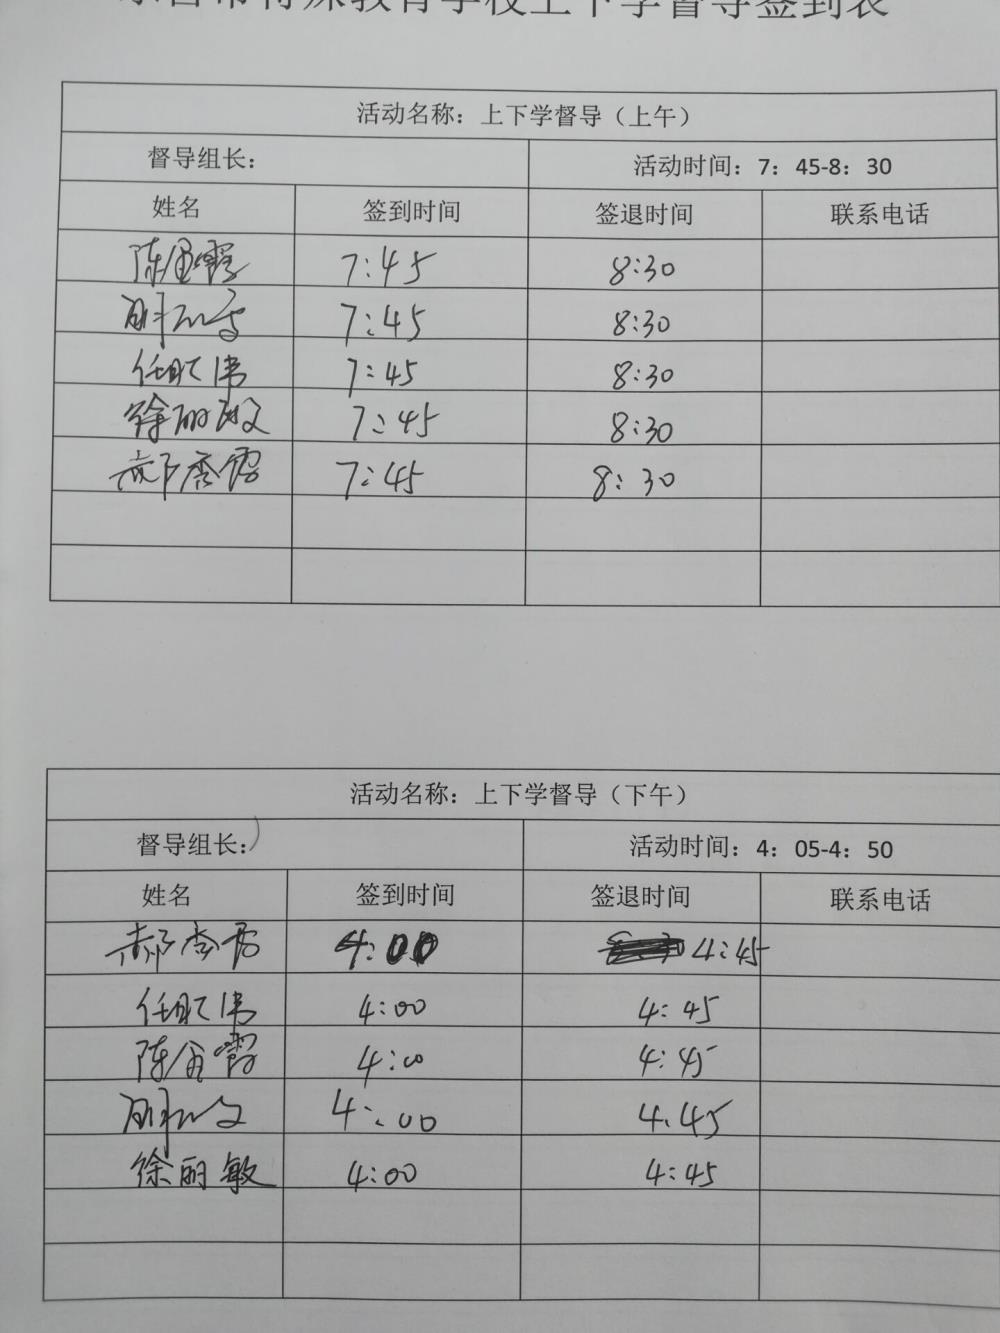 特殊教育学校上下学督导签到表
活动名称：上下学督导（上午）
督导组长： 活动时间：7：45-8：30
姓名 签到时间 签退时间 联系电话
陈金霞 7:45 8:30
7:45 8:30
任 伟 7:45 8:30
徐丽敏 7:45 8:30
郝秀 7:45 8:30
活动名称：上下学督导（下午）
督导组长： 活动时间：4：05-4：50
姓名 签到时间 签退时间 联系电话
郝秀 4:00 4:45
任 伟 4:00 4:45
陈金霞 4:00 4:45
4:00 4.45
徐丽敏 4:00 4:45